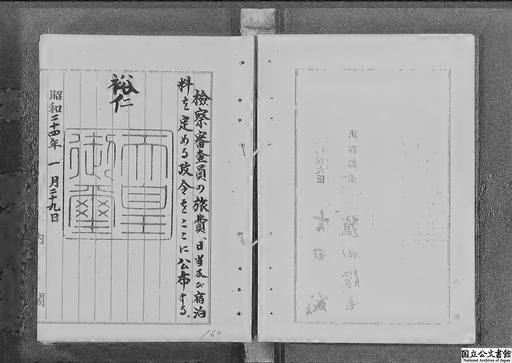 検察審査員の旅費、日当及び宿泊
料を定める政令をここに公布する。
裕仁
天皇
御璽
昭和二十四年一月二十九日
内閣
160
国立公文書館
National Archives of Japan